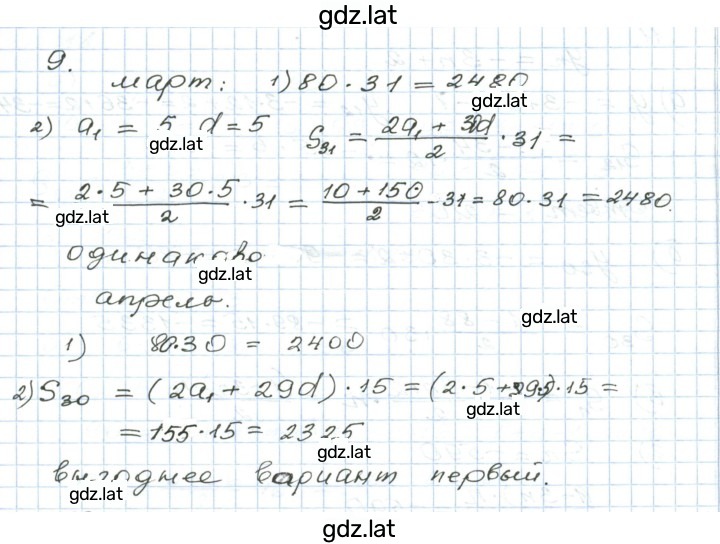 gdz.lat
9.
март: 1) 80 · 31 = 2480
gdz.lat
2) a₁ = 5 d = 5 S₃₁ = (2a₁ + 30d)/2 · 31 =
gdz.lat
= (2·5 + 30·5)/2 · 31 = (10 + 150)/2 - 31 = 80 · 31 = 2480.
gdz.lat
одинаково
gdz.lat
апрель.
gdz.lat
1) 80·30 = 2400
2) S₃₀ = (2a₁ + 29d) · 15 = (2·5 + 29·5) · 15 =
gdz.lat
= 155 · 15 = 2325
gdz.lat
выгоднее вариант первый.
gdz.lat
gdz.lat